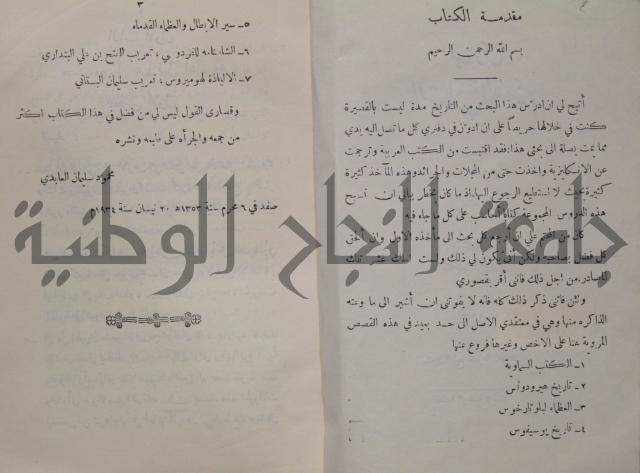 مقدمة الكتاب
بسم الله الرحمن الرحيم
أتيح لي ان ادرّس هذا البحث من التاريخ مدة ليست بالقصيرة
كنت في خلالها حريصاً على ان ادوّن في دفتري كل ما تصل اليه يدي
مما يمت بصلة الى بحثي هذا: فقد اقتبست من الكتب العربية وترجمت
عن الانكليزية واخذت حتى من المجلات والجرائد وهذه المآخذ كثيرة
كثيرة بحيث لا استطيع الرجوع اليها. اذ ما كان يخطر ببالي ان تصبح
هذه الدروس المجموعة كتاباً على كل ما جاء فيه
كان من علي ان كل بحث الى مأخذه الاولي وان ألحق
كل فضل بصاحبه ولكن أنى يكون لي ذلك ولست املك عشر تلك
المصادر. من اجل ذلك فاني أقر بقصوري
ولئن فاتني ذكر ذلك كله فانه لا يفوتني ان أشير الى ما وعته
الذاكره منها وهي في معتقدي الاصل الى حد بعيد في هذه القصص
المرويّة عنا على الاخص وغيرها فروع عنها
١- الكتب السماوية
٢- تاريخ هيرودوتس
٣- العظماء لبلوتارخوس
٤- تاريخ يوسيفوس
٣
٥- سير الابطال والعظماء القدماء
٦- الشاهنامه للفردوسي، تعريب الفتح بن علي البنداري
٧- الالياذة لهوميروس، تعريب سليمان البستاني
وقصارى القول ليس لي من فضل في هذا الكتاب اكثر
من جمعه والجرأه على طبعه ونشره
محمود سليمان العابدي
صفد في ٦ محرم سنة ١٣٥٣هـ ٢٠ نيسان سنة ١٩٣٤م
جامعة النجاح الوطنية